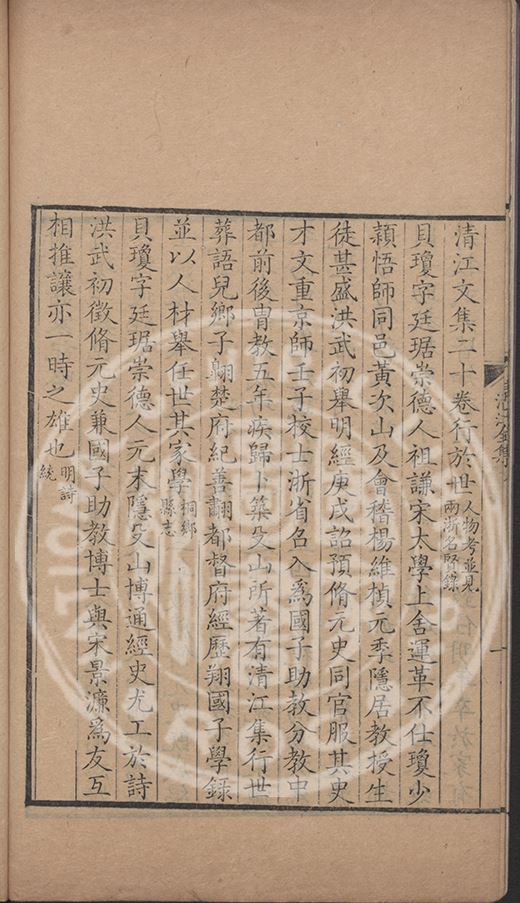 清江文集二十卷行於世人物考並見兩浙名賢錄
貝瓊字廷琚崇德人祖謙宋太學上舍運革不仕瓊少
頴悟師同邑黃次山及會稽楊維楨元季隱居教授生
徒甚盛洪武初舉明經庚戌詔預脩元史同官服其史
才文重京師壬子校士浙省名入爲國子助教分教中
都前後胄教五年疾歸卜築殳山所著有清江集行世
葬語兒鄉子翺楚府紀善翮都督府經歷翔國子學錄
並以人材舉任世其家學桐鄉縣志
貝瓊字廷琚崇德人元末隱殳山博通經史尤工於詩
洪武初徵脩元史兼國子助教博士與宋景濂爲友互
相推讓亦一時之雄也明詩統